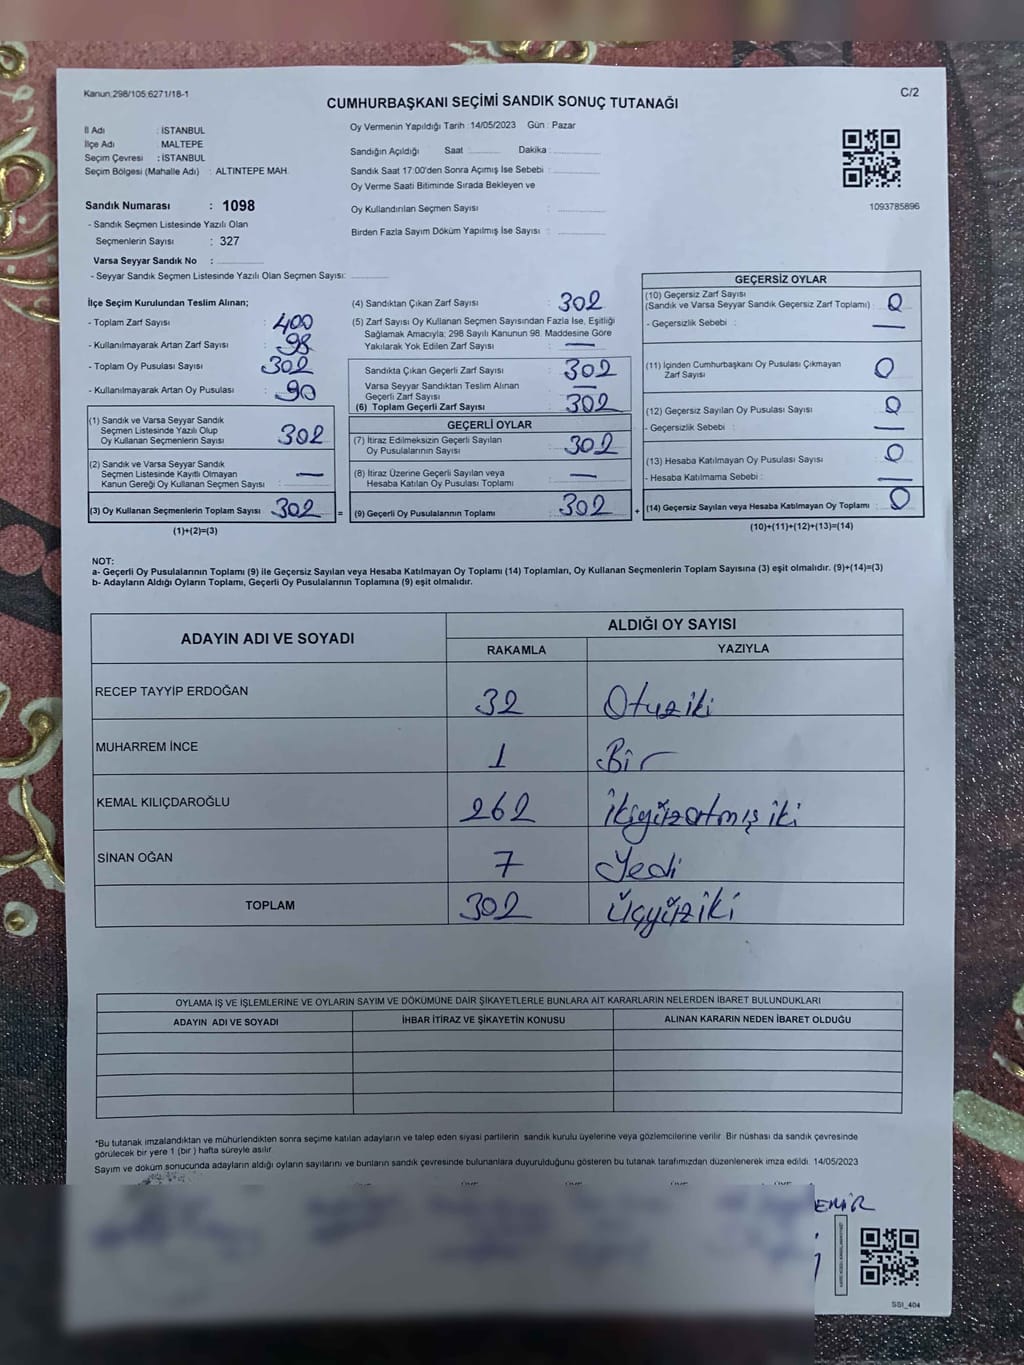 Kanun:298/105;6271/18-1
C/2
CUMHURBAŞKANI SEÇİMİ SANDIK SONUÇ TUTANAĞI
İl Adı : İSTANBUL
İlçe Adı : MALTEPE
Seçim Çevresi : İSTANBUL
Seçim Bölgesi (Mahalle Adı) : ALTINTEPE MAH.
Sandık Numarası : 1098
- Sandık Seçmen Listesinde Yazılı Olan
Seçmenlerin Sayısı : 327
Varsa Seyyar Sandık No :
- Seyyar Sandık Seçmen Listesinde Yazılı Olan Seçmen Sayısı:
Oy Vermenin Yapıldığı Tarih : 14/05/2023 Gün : Pazar
Sandığın Açıldığı Saat Dakika
Sandık Saat 17:00'den Sonra Açımış İse Sebebi :
Oy Verme Saati Bitiminde Sırada Bekleyen ve
Oy Kullandırılan Seçmen Sayısı :
Birden Fazla Sayım Döküm Yapılmış İse Sayısı :
1093785896
İlçe Seçim Kurulundan Teslim Alınan;
- Toplam Zarf Sayısı : 400
- Kullanılmayarak Artan Zarf Sayısı : 98
- Toplam Oy Pusulası Sayısı : 302
- Kullanılmayarak Artan Oy Pusulası : 90
(1) Sandık ve Varsa Seyyar Sandık
Seçmen Listesinde Yazılı Olup
Oy Kullanan Seçmenlerin Sayısı 302
(2) Sandık ve Varsa Seyyar Sandık
Seçmen Listesinde Kayıtlı Olmayan
Kanun Gereği Oy Kullanan Seçmen Sayısı : —
(3) Oy Kullanan Seçmenlerin Toplam Sayısı 302
(1)+(2)=(3)
(4) Sandıktan Çıkan Zarf Sayısı : 302
(5) Zarf Sayısı Oy Kullanan Seçmen Sayısından Fazla İse, Eşitliği
Sağlamak Amacıyla; 298 Sayılı Kanunun 98. Maddesine Göre
Yakılarak Yok Edilen Zarf Sayısı : —
Sandıkta Çıkan Geçerli Zarf Sayısı : 302
Varsa Seyyar Sandıktan Teslim Alınan
Geçerli Zarf Sayısı : —
(6) Toplam Geçerli Zarf Sayısı : 302
GEÇERLİ OYLAR
(7) İtiraz Edilmeksizin Geçerli Sayılan
Oy Pusulalarının Sayısı : 302
(8) İtiraz Üzerine Geçerli Sayılan veya
Hesaba Katılan Oy Pusulası Toplamı : —
= (9) Geçerli Oy Pusulalarının Toplamı : 302 +
GEÇERSİZ OYLAR
(10) Geçersiz Zarf Sayısı
(Sandık ve Varsa Seyyar Sandık Geçersiz Zarf Toplamı) : 0
- Geçersizlik Sebebi : —
(11) İçinden Cumhurbaşkanı Oy Pusulası Çıkmayan
Zarf Sayısı : 0
(12) Geçersiz Sayılan Oy Pusulası Sayısı : 0
- Geçersizlik Sebebi : —
(13) Hesaba Katılmayan Oy Pusulası Sayısı : 0
- Hesaba Katılmama Sebebi : —
(14) Geçersiz Sayılan veya Hesaba Katılmayan Oy Toplamı : 0
(10)+(11)+(12)+(13)=(14)
NOT:
a- Geçerli Oy Pusulalarının Toplamı (9) ile Geçersiz Sayılan veya Hesaba Katılmayan Oy Toplamı (14) Toplamları, Oy Kullanan Seçmenlerin Toplam Sayısına (3) eşit olmalıdır. (9)+(14)=(3)
b- Adayların Aldığı Oyların Toplamı, Geçerli Oy Pusulalarının Toplamına (9) eşit olmalıdır.
ADAYIN ADI VE SOYADI
ALDIĞI OY SAYISI
RAKAMLA YAZIYLA
RECEP TAYYİP ERDOĞAN 32 Otuziki
MUHARREM İNCE 1 Bir
KEMAL KILIÇDAROĞLU 262 ikiyüzatmış iki
SİNAN OĞAN 7 Yedi
TOPLAM 302 Üçyüziki
OYLAMA İŞ VE İŞLEMLERİNE VE OYLARIN SAYIM VE DÖKÜMÜNE DAİR ŞİKAYETLERLE BUNLARA AİT KARARLARIN NELERDEN İBARET BULUNDUKLARI
ADAYIN ADI VE SOYADI İHBAR İTİRAZ VE ŞİKAYETİN KONUSU ALINAN KARARIN NEDEN İBARET OLDUĞU
*Bu tutanak imzalandıktan ve mühürlendikten sonra seçime katılan adayların ve talep eden siyasi partilerin sandık kurulu üyelerine veya gözlemcilerine verilir. Bir nüshası da sandık çevresinde
görülecek bir yere 1 (bir) hafta süreyle asılır.
Sayım ve döküm sonucunda adayların aldığı oyların sayılarını ve bunların sandık çevresinde bulunanlara duyurulduğunu gösteren bu tutanak tarafımızdan düzenlenerek imza edildi. 14/05/2023
EMİR
SSI_404